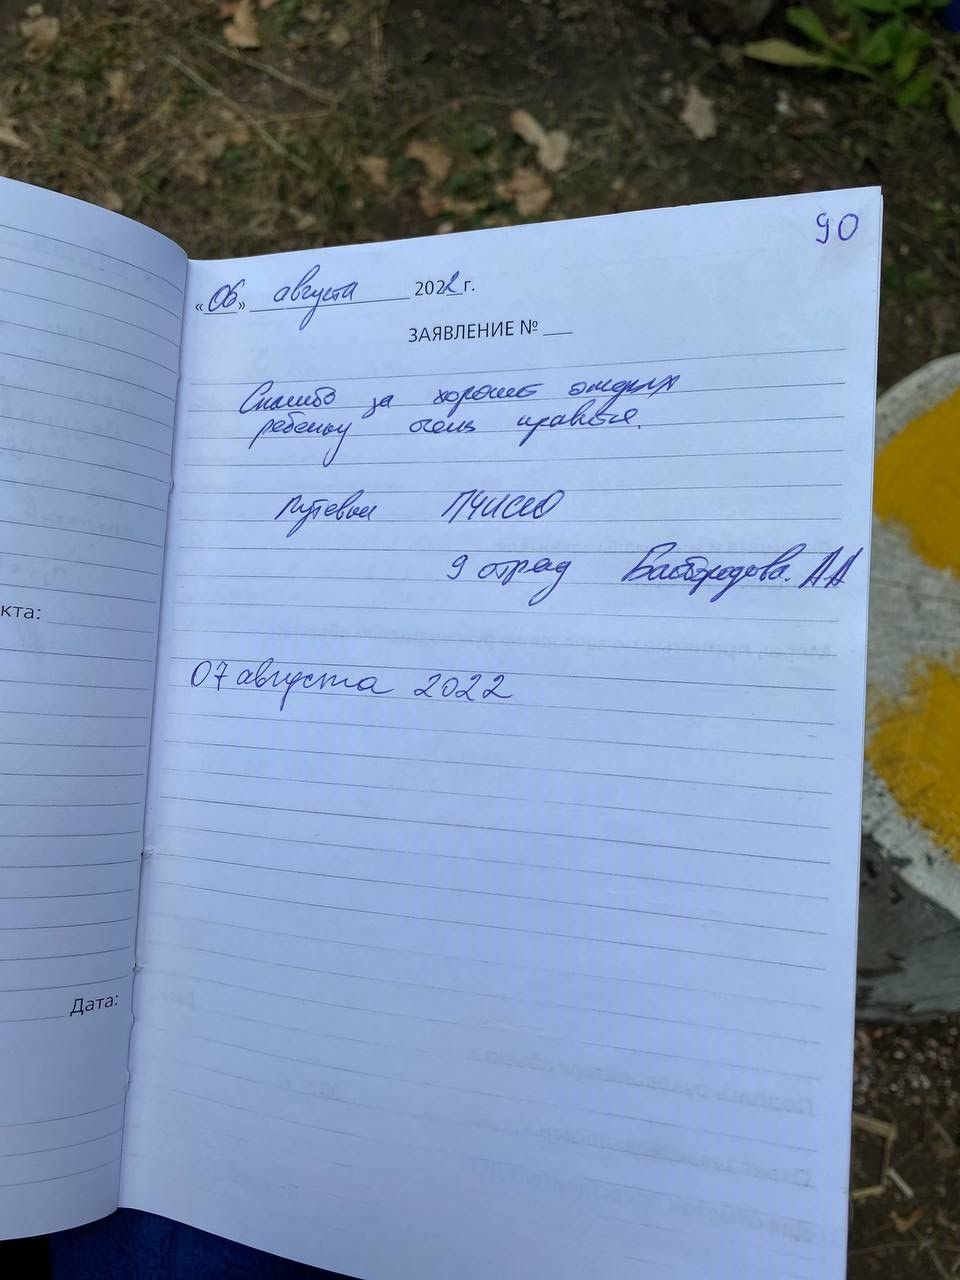 90
«06» августа 2022 г.
ЗАЯВЛЕНИЕ № __
Спасибо за хороший отдых
ребенку очень нравится.
Путевки
9 отряд А А
07 августа 2022
кта:
Дата: